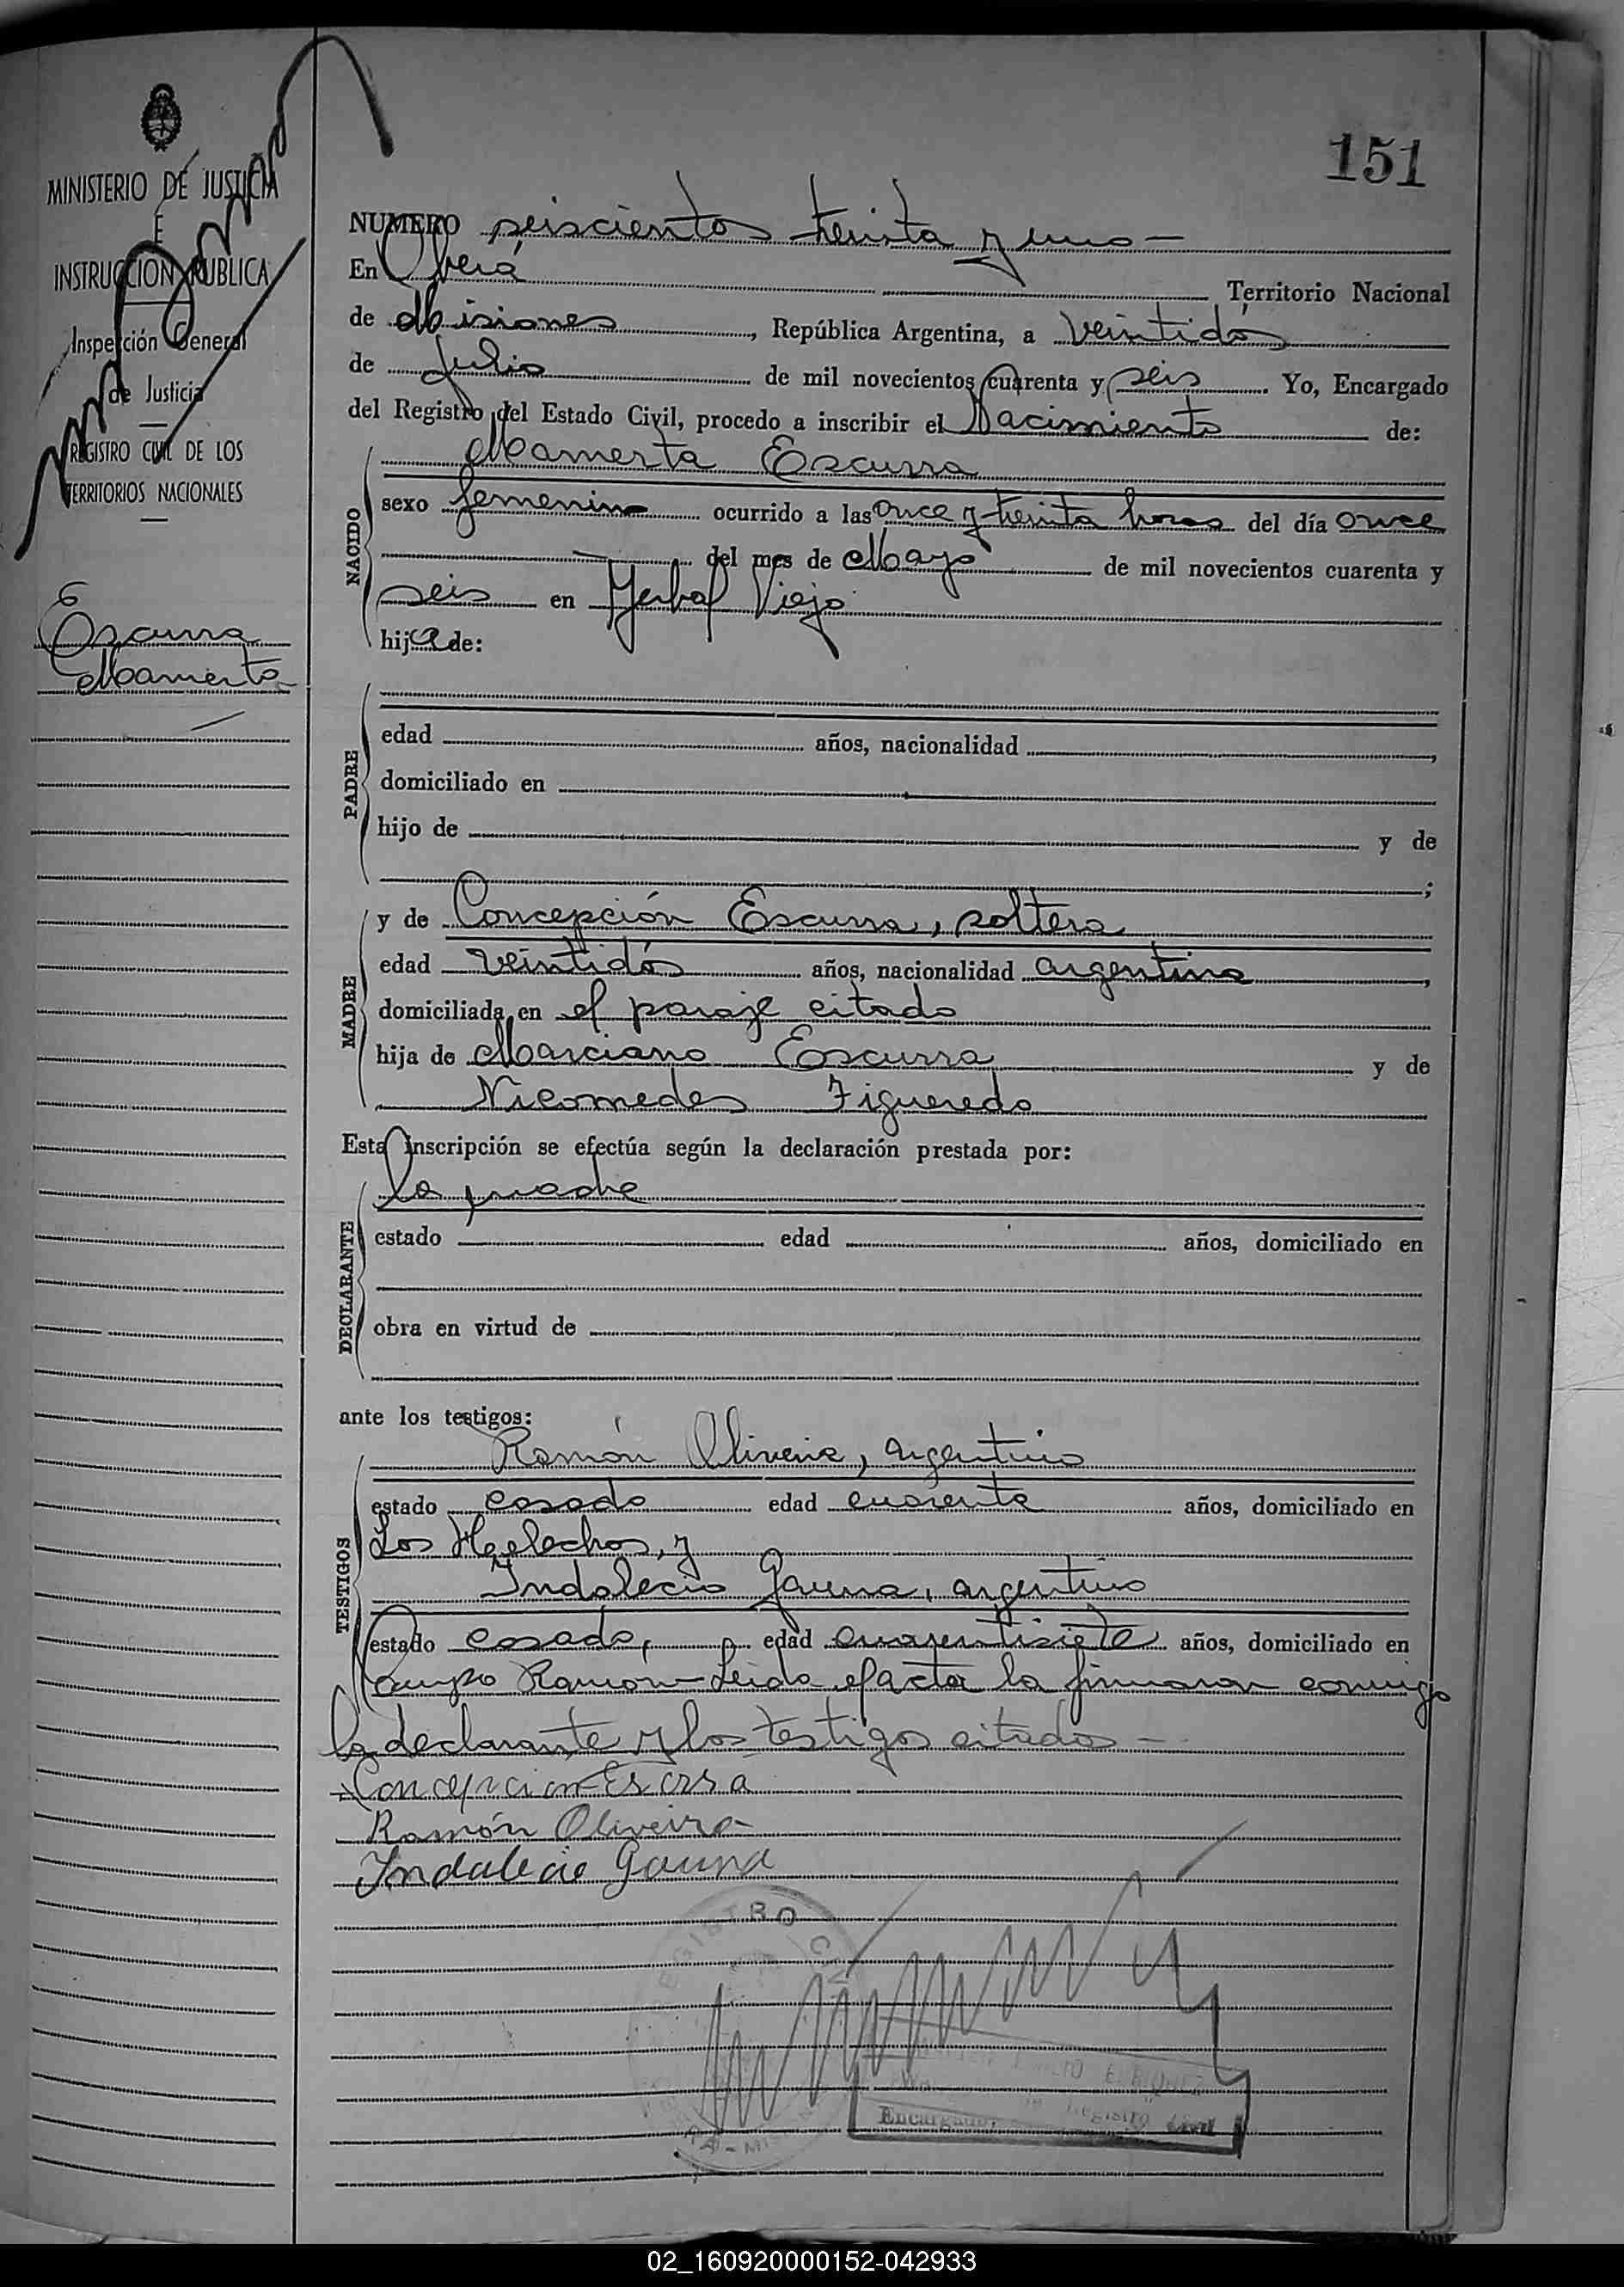 151
MINISTERIO DE JUSTICIA
E
INSTRUCCION PUBLICA
Inspección General
de Justicia
REGISTRO CIVIL DE LOS
TERRITORIOS NACIONALES
6
Escurra
Mamerta
NUMERO seiscientos treinta y uno
En Oberá Territorio Nacional
de Misiones, República Argentina, a veintidós
de Julio de mil novecientos cuarenta y seis. Yo, Encargado
del Registro del Estado Civil, procedo a inscribir el Nacimiento de:
NACIDO
Mamerta Escurra
sexo femenino ocurrido a las once y treinta horas del día once
del mes de Mayo de mil novecientos cuarenta y
seis en Yerbal Viejo
hija de:
PADRE
edad años, nacionalidad ,
domiciliado en
hijo de y de
;
MADRE
y de Concepción Escurra, soltera
edad veintidós años, nacionalidad argentina,
domiciliada en el paraje citado
hija de Marciano Escurra y de
Nicomedes Figueredo
Esta inscripción se efectúa según la declaración prestada por:
DECLARANTE
la madre
estado edad años, domiciliado en
obra en virtud de
ante los testigos:
TESTIGOS
Ramón Oliveira, argentino
estado casado edad cuarenta años, domiciliado en
Los Helechos, y
Indalecio Gauna, argentino
estado casado, edad cuarentisiete años, domiciliado en
Campo Ramón - Leida el acta la firmaron conmigo
la declarante y los testigos citados -
Concepcion Escrra
Ramón Oliveira
Indalecio Gauna
REGISTRO
Encargado Registro Civil
02_160920000152-042933